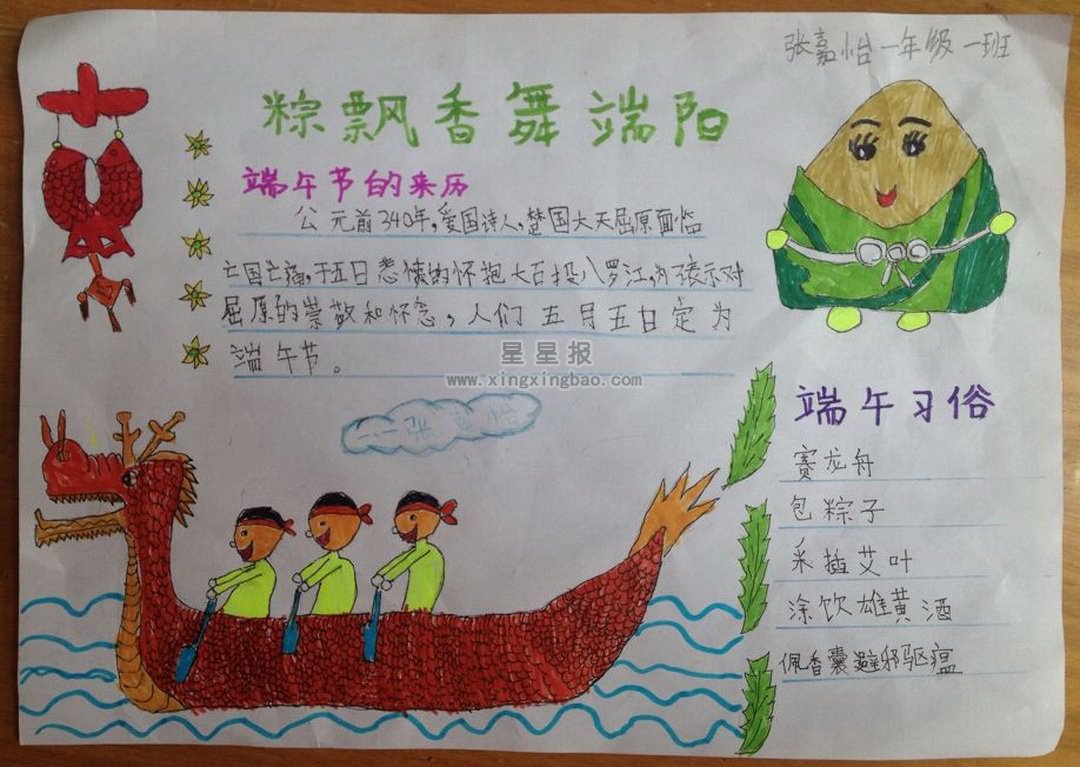 张嘉怡一年级一班
粽飘香舞端阳
端午节的来历
公元前340年,爱国诗人、楚国大天屈原面临
亡国亡痛,于五日悲愤的怀抱大石投八罗江,为表示对
屈原的崇敬和怀念,人们五月五日定为
端午节。
星星报
www.xingxingbao.com
端午习俗
赛龙舟
包粽子
采插艾叶
涂饮雄黄酒
佩香囊避邪驱瘟